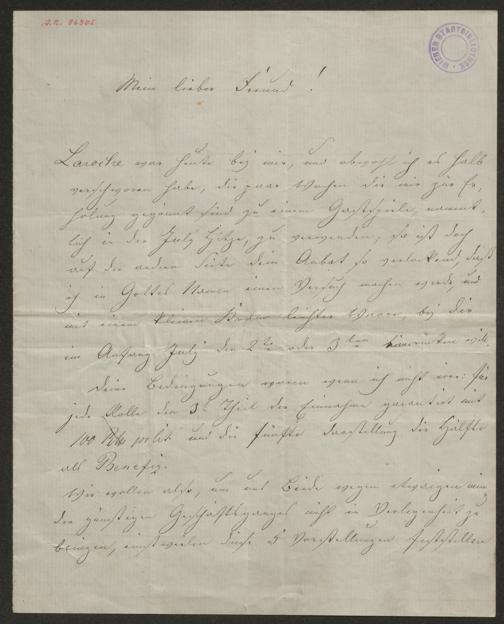 J.N. 76905
WIENER STADTBIBLIOTHEK
Mein lieber Freund!
Laroche war heute bei mir, und obwohl ich es halb
verschworen habe, die paar Wochen die mir zur Er-
holung gegönnt sind zu einem Gastspiele, nament-
lich in der July Hitze, zu verwenden, so ist doch
auf der andern Seite dein Anbot so verlockend, daß
ich in Gottes Namen einen Versuch machen werde und
mit einem kleinen leichter Waare, bei dir
im Anfang July den 2ten oder 3ten will.
Deine Bedingungen waren wenn ich nicht irre: für
jede Rolle den 3. Theil der Einnahme garantirt mit
100 und die fünfte Darstellung die Hälfte
als Benefiz.
Wir wollen also, um uns Beide wegen etwaigen min-
der günstigen Geschäftsganges nicht in Verlegenheit zu
bringen, einstweilen diese 5 Vorstellungen feststellen